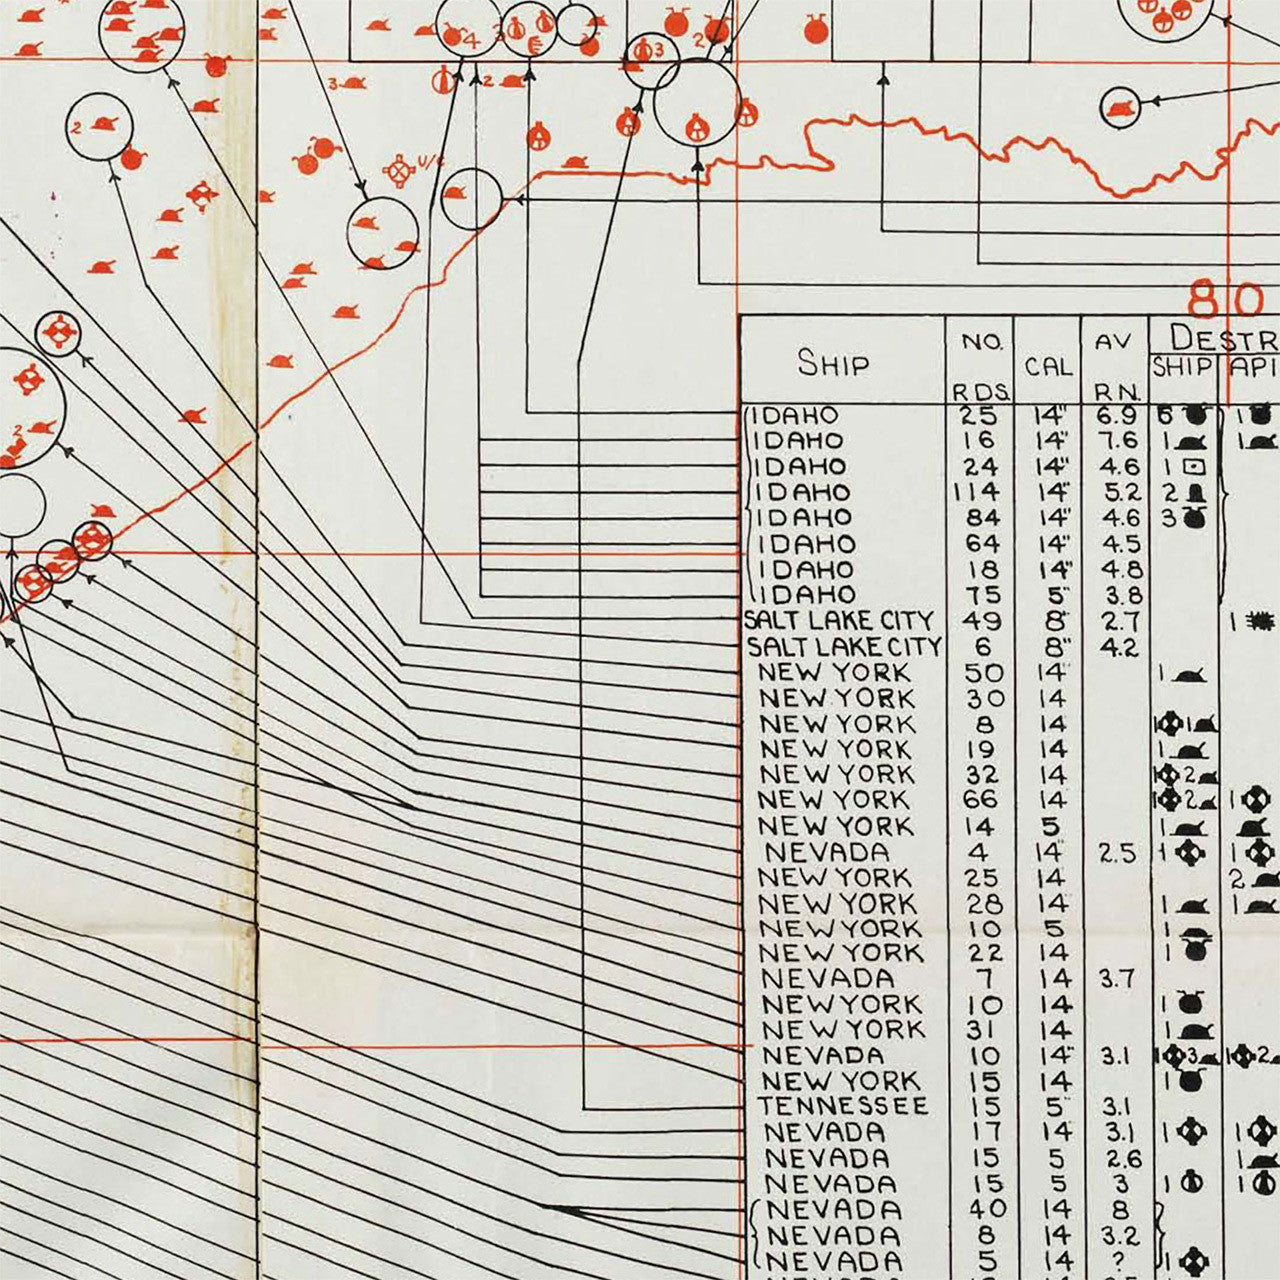 4 3
3
2
3
2
2
U/C
80
2
SHIP NO. RDS. CAL AV RN. DESTR SHIP API
IDAHO 25 14" 6.9 5 1
IDAHO 16 14" 7.6 1 1
IDAHO 24 14" 4.6 1
IDAHO 114 14" 5.2 2
IDAHO 84 14" 4.6 3
IDAHO 64 14" 4.5
IDAHO 18 14" 4.8
IDAHO 75 5" 3.8
SALT LAKE CITY 49 8" 2.7 1
SALT LAKE CITY 6 8" 4.2
NEW YORK 50 14" 1
NEW YORK 30 14
NEW YORK 8 14 1 1
NEW YORK 19 14 1
NEW YORK 32 14 1 2
NEW YORK 66 14 1 2 1
NEW YORK 14 5 1
NEVADA 4 14" 2.5 1 1
NEW YORK 25 14 2
NEW YORK 28 14 1 1
NEW YORK 10 5 1
NEW YORK 22 14 1
NEVADA 7 14 3.7
NEW YORK 10 14 1
NEW YORK 31 14 1
NEVADA 10 14" 3.1 1 3 1 2
NEW YORK 15 14 1
TENNESSEE 15 5" 3.1
NEVADA 17 14 3.1 1 1
NEVADA 15 5 2.6 1
NEVADA 15 5 3 1 1
NEVADA 40 14 8
NEVADA 8 14 3.2
NEVADA 5 14 ? 1